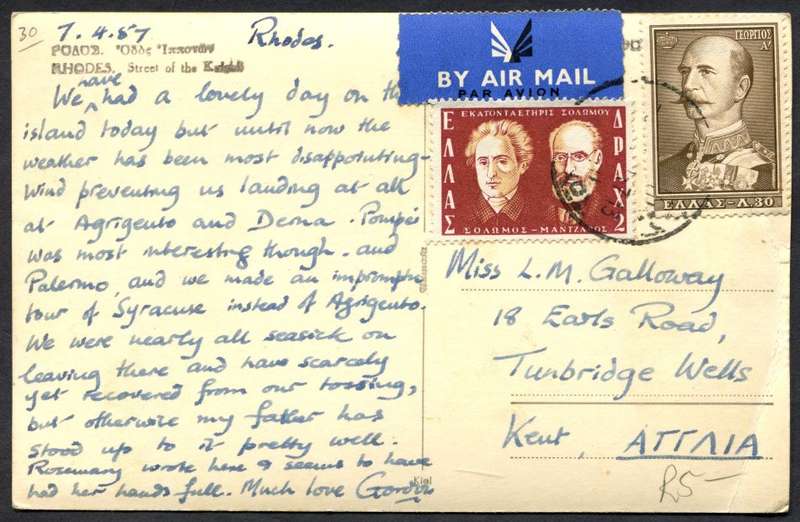 30
7.4.57 Rhodes.
ΡΟΔΟΣ. Ὁδὸς Ἱπποτῶν
RHODES. Street of the Knights
We have had a lovely day on the
island today but until now the
weather has been most disappointing-
wind preventing us landing at all
at Agrigento and Derna. Pompei
was most interesting though. and
Palermo, and we made an impromptu
tour of Syracuse instead of Agrigento.
We were nearly all seasick on
leaving there and have scarcely
yet recovered from our tossing,
but otherwise my father has
stood up to it pretty well.
Rosemary wrote here & seems to have
had her hands full. Much love Gordon
BY AIR MAIL
PAR AVION
ΕΚΑΤΟΝΤΑΕΤΗΡΙΣ ΣΟΛΩΜΟΥ
ΕΛΛΑΣ
ΔΡΑΧ 2
ΣΟΛΩΜΟΣ – ΜΑΝΤΖΑΡΟΣ
ΓΕΩΡΓΙΟΣ
Α'
ΕΛΛΑΣ-Λ.30
Miss L.M. Galloway
18 Earls Road,
Tunbridge Wells
Kent, ΑΓΓΛΙΑ
R5-